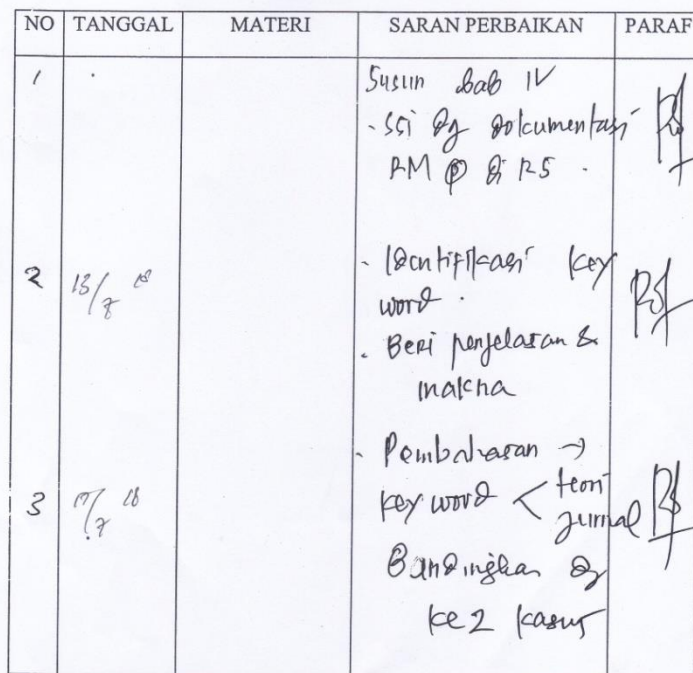 NO TANGGAL MATERI SARAN PERBAIKAN PARAF
1 Susun bab IV
- ssi dg dokumentasi
RM di RS.
2 13/7 18 - Identifikasi key
word.
- Beri penjelasan &
makna
- Pembahasan →
3 17/7 18 key word < teori
jurnal
Bandingkan dg
ke 2 kasus